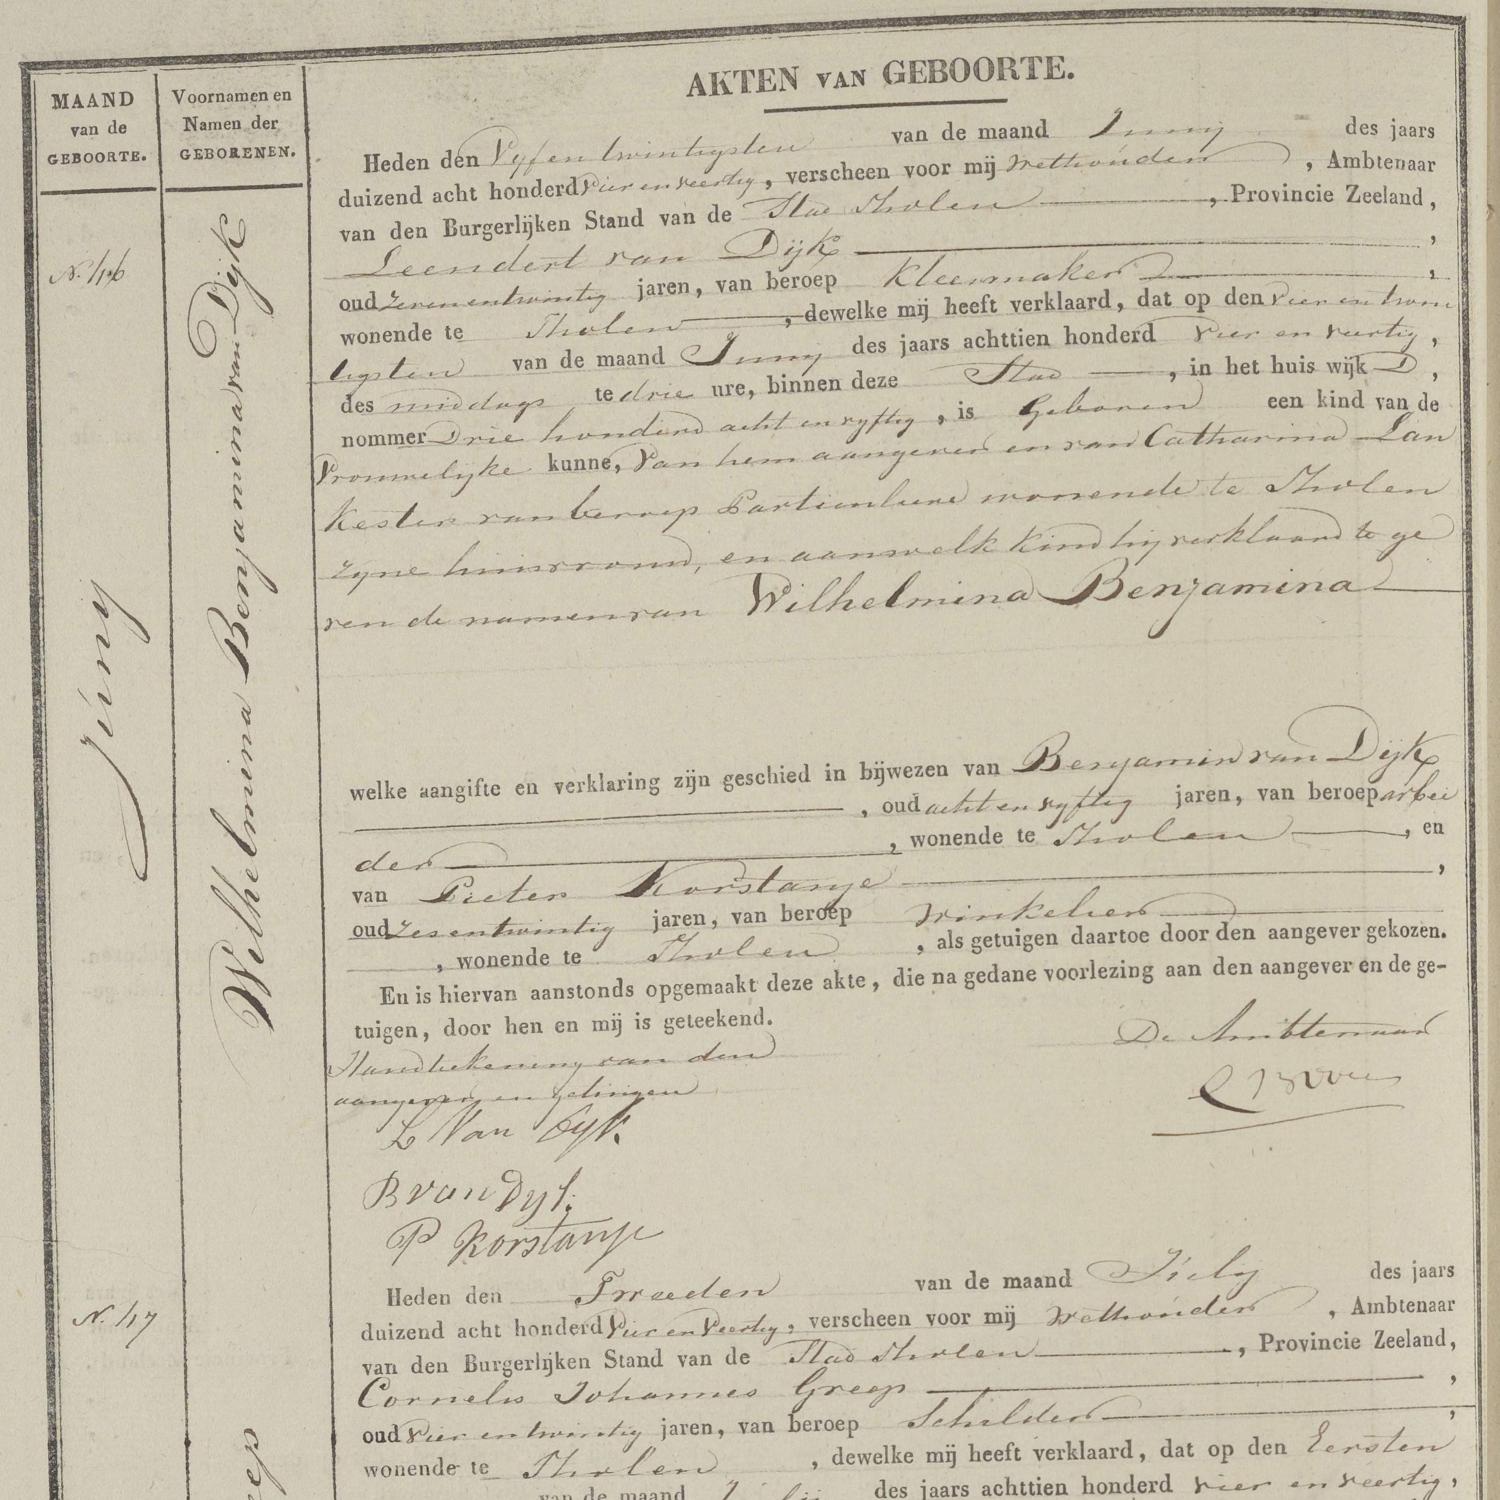 AKTEN VAN GEBOORTE.
MAAND
van de
GEBOORTE.
Voornamen en
Namen der
GEBORENEN.
Juny
Wilhelmina Benjamina van Dijk
Heden den Vyf en twintigsten van de maand Juny des jaars
duizend acht honderd vier en veertig, verscheen voor mij Wethouder, Ambtenaar
van den Burgerlijken Stand van de Stad Tholen, Provincie Zeeland,
Leendert van Dijk,
oud zevenentwintig jaren, van beroep Kleermaker,
wonende te Tholen, dewelke mij heeft verklaard, dat op den vier en twin
tigsten van de maand Juny des jaars achttien honderd vier en veertig,
des middags te drie ure, binnen deze Stad, in het huis wijk D,
nommer Drie honderd acht en vyftig, is Geboren een kind van de
Vrouwelijke kunne, van hem aangever en van Catharina Lan
kester van beroep Particuliere wonende te Tholen
zyne huisvrouw, en aan welk kind hij verklaard te ge
ven de namen van Wilhelmina Benjamina
welke aangifte en verklaring zijn geschied in bijwezen van Benjamin van Dijk
, oud acht en vyftig jaren, van beroep arbei
der, wonende te Tholen, en
van Pieter Korstanje,
oud zesentwintig jaren, van beroep Winkelier
, wonende te Tholen, als getuigen daartoe door den aangever gekozen.
En is hiervan aanstonds opgemaakt deze akte, die na gedane voorlezing aan den aangever en de ge-
tuigen, door hen en mij is geteekend.
Handtekening van den De Ambtenaar
aangever en getuigen
L Van Dyk
B van Dyk
P Korstanje
N. 117
Heden den Tweeden van de maand July des jaars
duizend acht honderd Vier en Veertig, verscheen voor mij Wethouder, Ambtenaar
van den Burgerlijken Stand van de Stad Tholen, Provincie Zeeland,
Cornelis Johannes Greep,
oud Vier en twintig jaren, van beroep Schilder,
wonende te Tholen, dewelke mij heeft verklaard, dat op den Eersten
van de maand July des jaars achttien honderd vier en veertig,